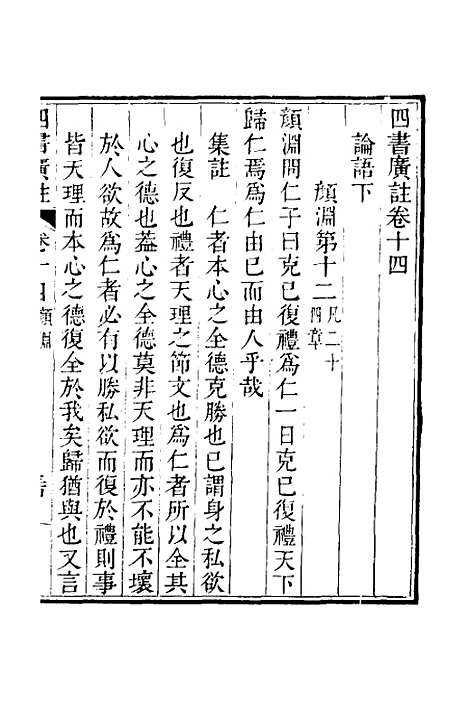 四書廣註卷十四
論語下
顏淵第十二凡二十四章
顏淵問仁子曰克己復禮為仁一日克己復禮天下
歸仁焉為仁由己而由人乎哉
集註　仁者本心之全德克勝也己謂身之私欲
也復反也禮者天理之節文也為仁者所以全其
心之德也蓋心之全德莫非天理而亦不能不壞
於人欲故為仁者必有以勝私欲而復於禮則事
皆天理而本心之德復全於我矣歸猶與也又言
四書廣註　卷十四顏淵